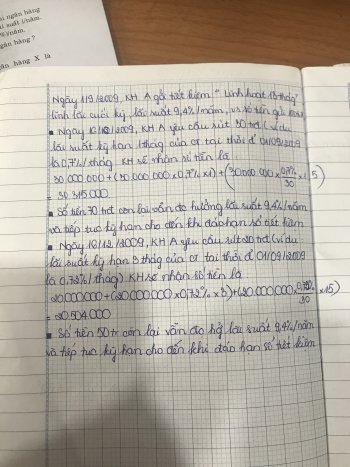 i ngân hàng
i suất 1/năm.
%/năm.
gân hàng?
ân hàng X là
Ngày 1/9/2009, KH A gởi tiết kiệm "Linh hoạt 13 tháng"
lĩnh lãi cuối kỳ, lãi suất 9,4%/năm, với số tiền gửi
▪ Ngày 16/10/2009, KH A yêu cầu rút 30 trđ (ví dụ
lãi suất kỳ hạn 1 tháng của ct tại thời đ 01/09/2009
là 0,7%/tháng). KH sẽ nhận số tiền là
30 000 000 + (30 000 000 x 0,7% x 1) + (30 000 000 x 0,7%/30 x 15)
= 30 315 000
▪ Số tiền 70 trđ còn lại vẫn đc hưởng lãi suất 9,4%/năm
và tiếp tục kỳ hạn cho đến khi đáo hạn số tiết kiệm
▪ Ngày 16/12/2009, KH A yêu cầu rút 20 trđ (ví dụ
lãi suất kỳ hạn 3 tháng của ct tại thời đ 01/09/2009
là 0,72%/tháng) KH sẽ nhận số tiền là
20 000 000 + (20 000 000 x 0,72% x 3) + (20 000 000 x 0,72%/30 x 15)
= 20 504 000
▪ Số tiền 50 tr còn lại vẫn đc hg lãi suất 9,4%/năm
và tiếp tục kỳ hạn cho đến khi đáo hạn số tiết kiệm